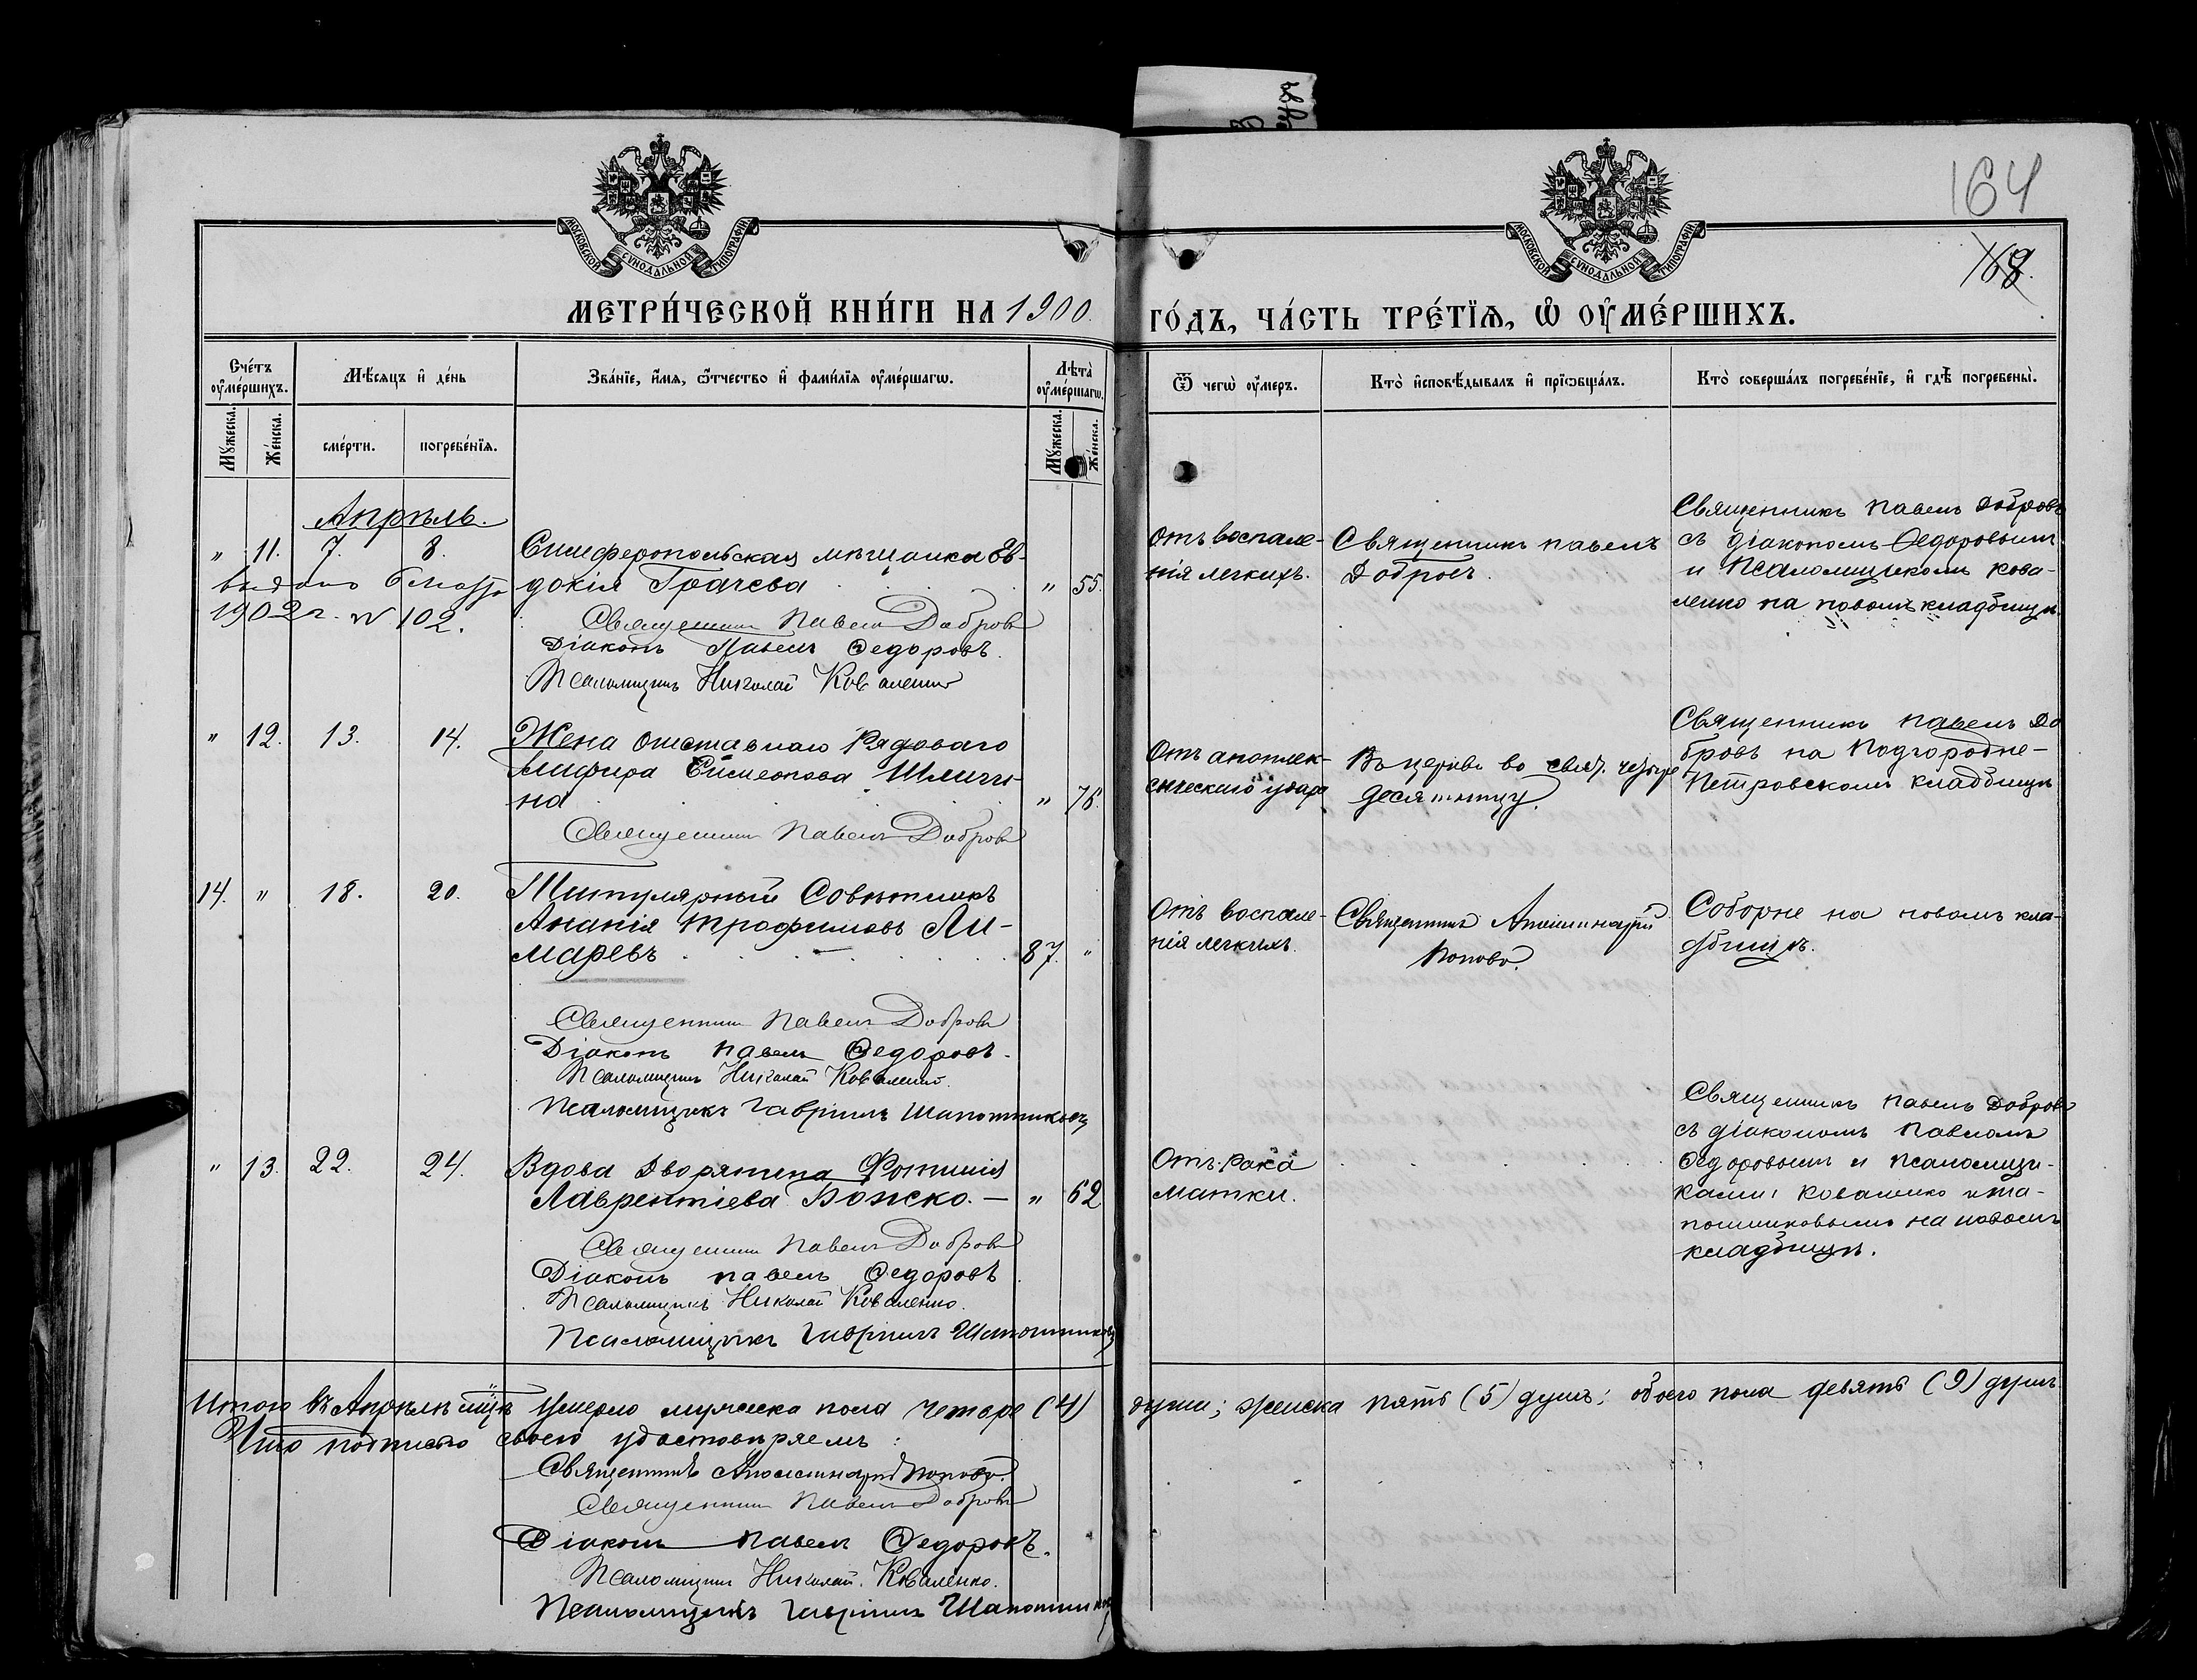 164
168.
МОСКОВСКОЙ СѴНОДАЛЬНОЙ ТИПОГРАФІИ
МОСКОВСКОЙ СѴНОДАЛЬНОЙ ТИПОГРАФІИ
МЕТРИ́ЧЕСКОЙ КНИ́ГИ НА 1900.
ГО́ДЪ, ЧА́СТЬ ТРЕ́ТЇѦ, Ѡ҆ ОУ҆МЕ́РШИХЪ.
Сче́тъ оу҆ме́ршихъ.
Мꙋ́жеска.
Же́нска.
Мѣ́сѧцъ и҆ де́нь
сме́рти.
погребе́нїѧ.
Зва́нїе, и҆́мѧ, ѻ҆́тчество и҆ фами́лїѧ оу҆ме́ршагѡ.
Лѣ́та оу҆ме́ршагѡ.
Мꙋ́жеска.
Же́нска.
Ѿ чегѡ̀ оу҆́меръ.
Кто̀ и҆сповѣ́дывалъ и҆ прїѡбща́лъ.
Кто̀ соверша́лъ погребе́нїе, и҆ гдѣ̀ погребены̀.
Апрѣль.
" 11. 7. 8.
Симферопольская мѣщанка Ев-
докія Грачева " 55.
выдано
1902 г. № 102.
Священникъ Павелъ Добровъ
Діаконъ Павелъ Федоровъ.
Псаломщикъ Николай Коваленко
Отъ воспале-
нія легкихъ.
Священникъ Павелъ
Добровъ.
Священникъ Павелъ Добровъ
съ діакономъ Федоровымъ
и Псаломщикомъ Кова-
ленко на новомъ кладбищѣ.
" 12. 13. 14.
Жена отставнаго Рядоваго
Глифира Симеонова Шличи-
на " 76.
Священникъ Павелъ Добровъ
Отъ апоплек-
сическаго удара
Въ церкви во свят. четыре
десятницу.
Священникъ Павелъ До
бровъ на Подгородне-
Петровскомъ кладбищѣ
14. " 18. 20.
Титулярный Совѣтникъ
Ананія Трофимовъ Ли-
маревъ 87. "
Священникъ Павелъ Добровъ
Діаконъ Павелъ Федоровъ.
Псаломщикъ Николай Коваленко.
Псаломщикъ Гавріилъ Шапошниковъ
Отъ воспале-
нія легкихъ.
Священникъ Аполлинарій
Поповъ.
Соборне на новомъ кла-
дбищѣ.
" 13. 22. 24.
Вдова Дворянина Фотинія
Лаврентіева Божко. — " 62
Священникъ Павелъ Добровъ
Діаконъ Павелъ Федоровъ
Псаломщикъ Николай Коваленко.
Псаломщикъ Гавріилъ Шапошниковъ
Отъ рака
матки.
Священникъ Павелъ Добровъ
съ діакономъ Павломъ
Федоровымъ и Псаломщи-
ками: Коваленко и Ша-
пошниковымъ на новомъ
кладбищѣ.
Итого въ Апрѣлѣ мцѣ умерло мужеска пола четыре (4)
души; женска пять (5) душъ; обоего пола девять (9) душъ
Что подписью своею удостовѣряемъ:
Священникъ Аполлинарій Поповъ.
Священникъ Павелъ Добровъ
Діаконъ Павелъ Федоровъ.
Псаломщикъ Николай Коваленко.
Псаломщикъ Гавріилъ Шапошниковъ